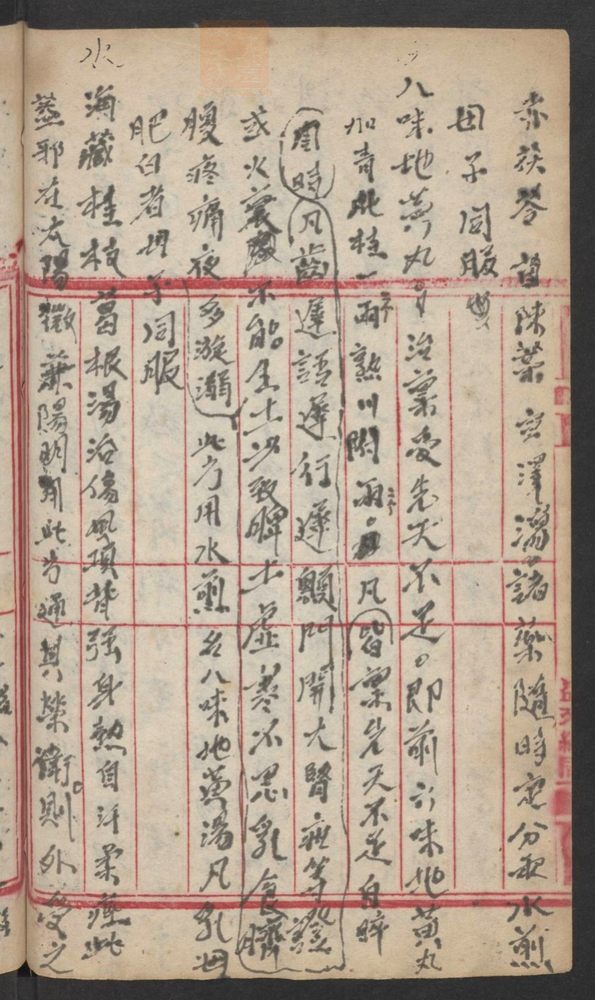 赤茯苓 苗陳葉 宣澤瀉 諸藥隨時定分兩水煎
母子同服
八味地黃丸 治稟受先天不足。即前六味地黃丸
加青肶桂一兩 熟川附 兩。凡皆稟先天不足自晬
周時凡齒遲語遲行遲顖門開大腎疳等證
或火衰不能生土以致脾土虛寒不思乳食臍
腹疼痛夜多漩溺 此方用水煎名八味地黃湯凡乳母
肥白者母子同服
水
海藏桂枝葛根湯治傷風項背強身熱自汗柔痙此
蓋邪在太陽微兼陽明用此方通其榮衛。則外受之